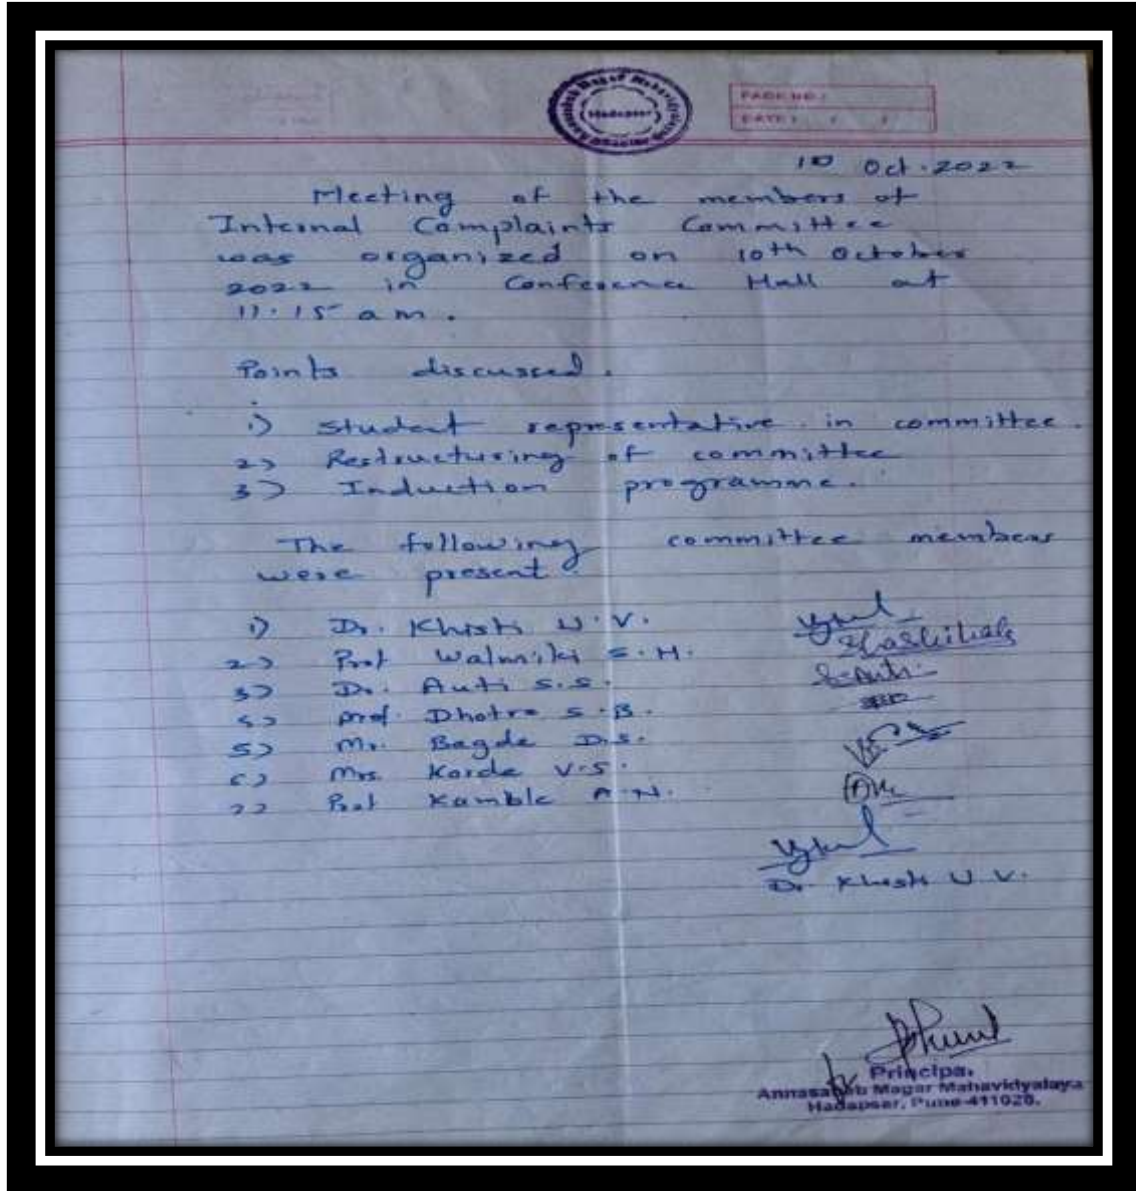 Annasaheb Magar Mahavidyalaya
Hadapsar
PAGE NO.:
DATE: / /
10 Oct. 2022
Meeting of the members of
Internal Complaints Committee
was organized on 10th October
2022 in Conference Hall at
11.15 a m.
Points discussed.
1) Student representative in committee.
2) Restructuring of committee
3) Induction programme.
The following committee members
were present.
1) Dr. Khisti U. V.
2) Prof Walmiki S. H.
3) Dr. Auti S.S.
4) Prof. Dhotre S.B.
5) Mr. Bagde D.S.
6) Mrs. Korde V.S.
7) Prof Kamble A.N.
Dr. Khisti U. V.
Principal
Annasaheb Magar Mahavidyalaya
Hadapsar, Pune-411028.